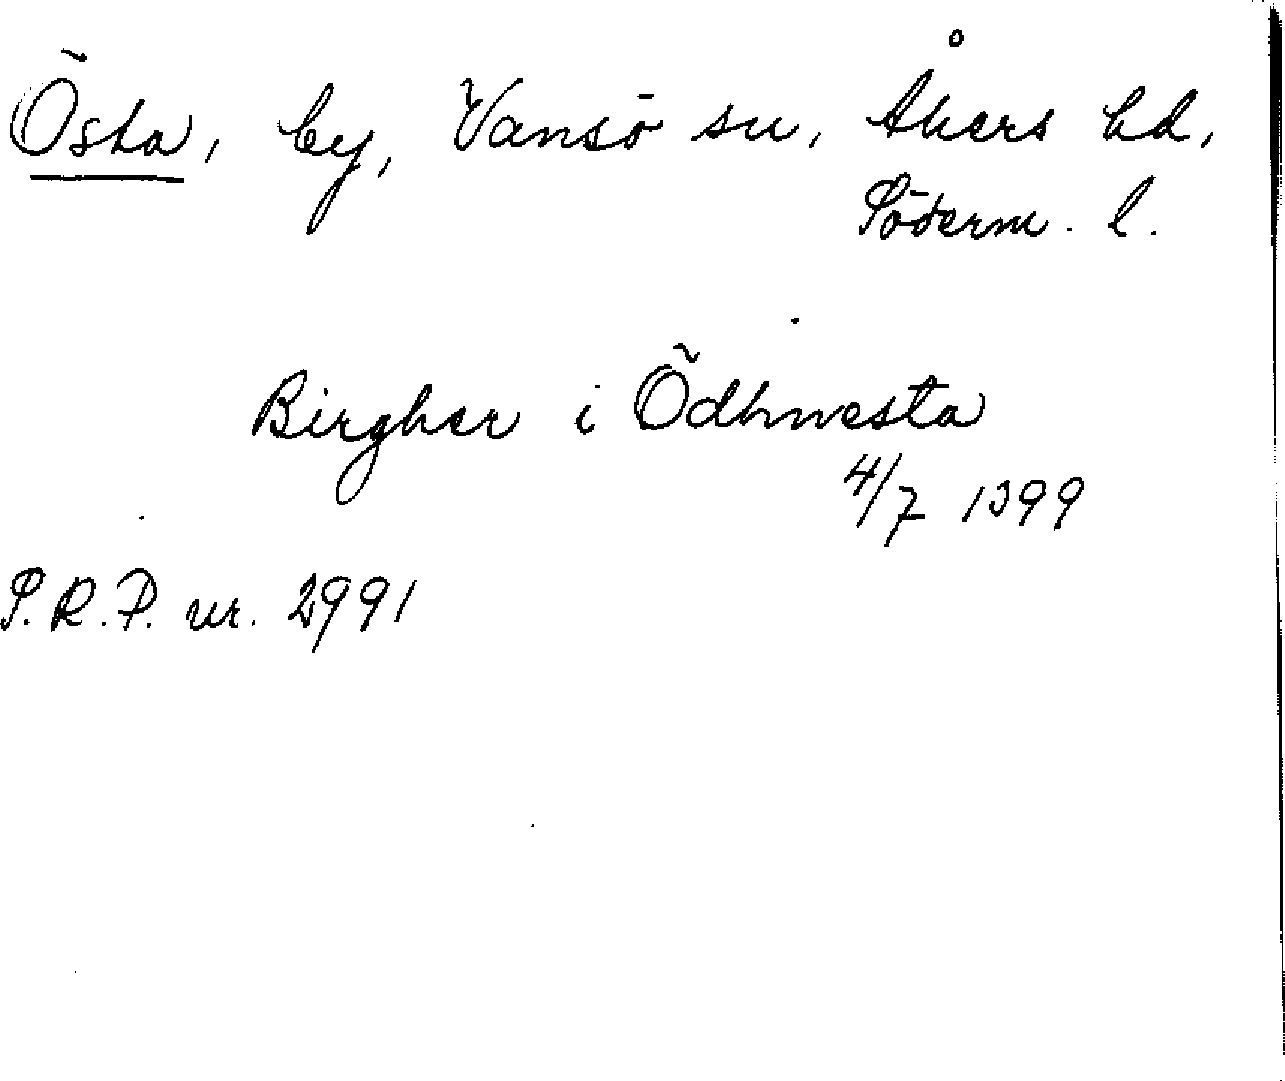 Östa, by, Vansö sn, Åkers hd,
Söderm. l.
Birgher i Ödhnvesta
4/7 1399
S.R.P. nr. 2991